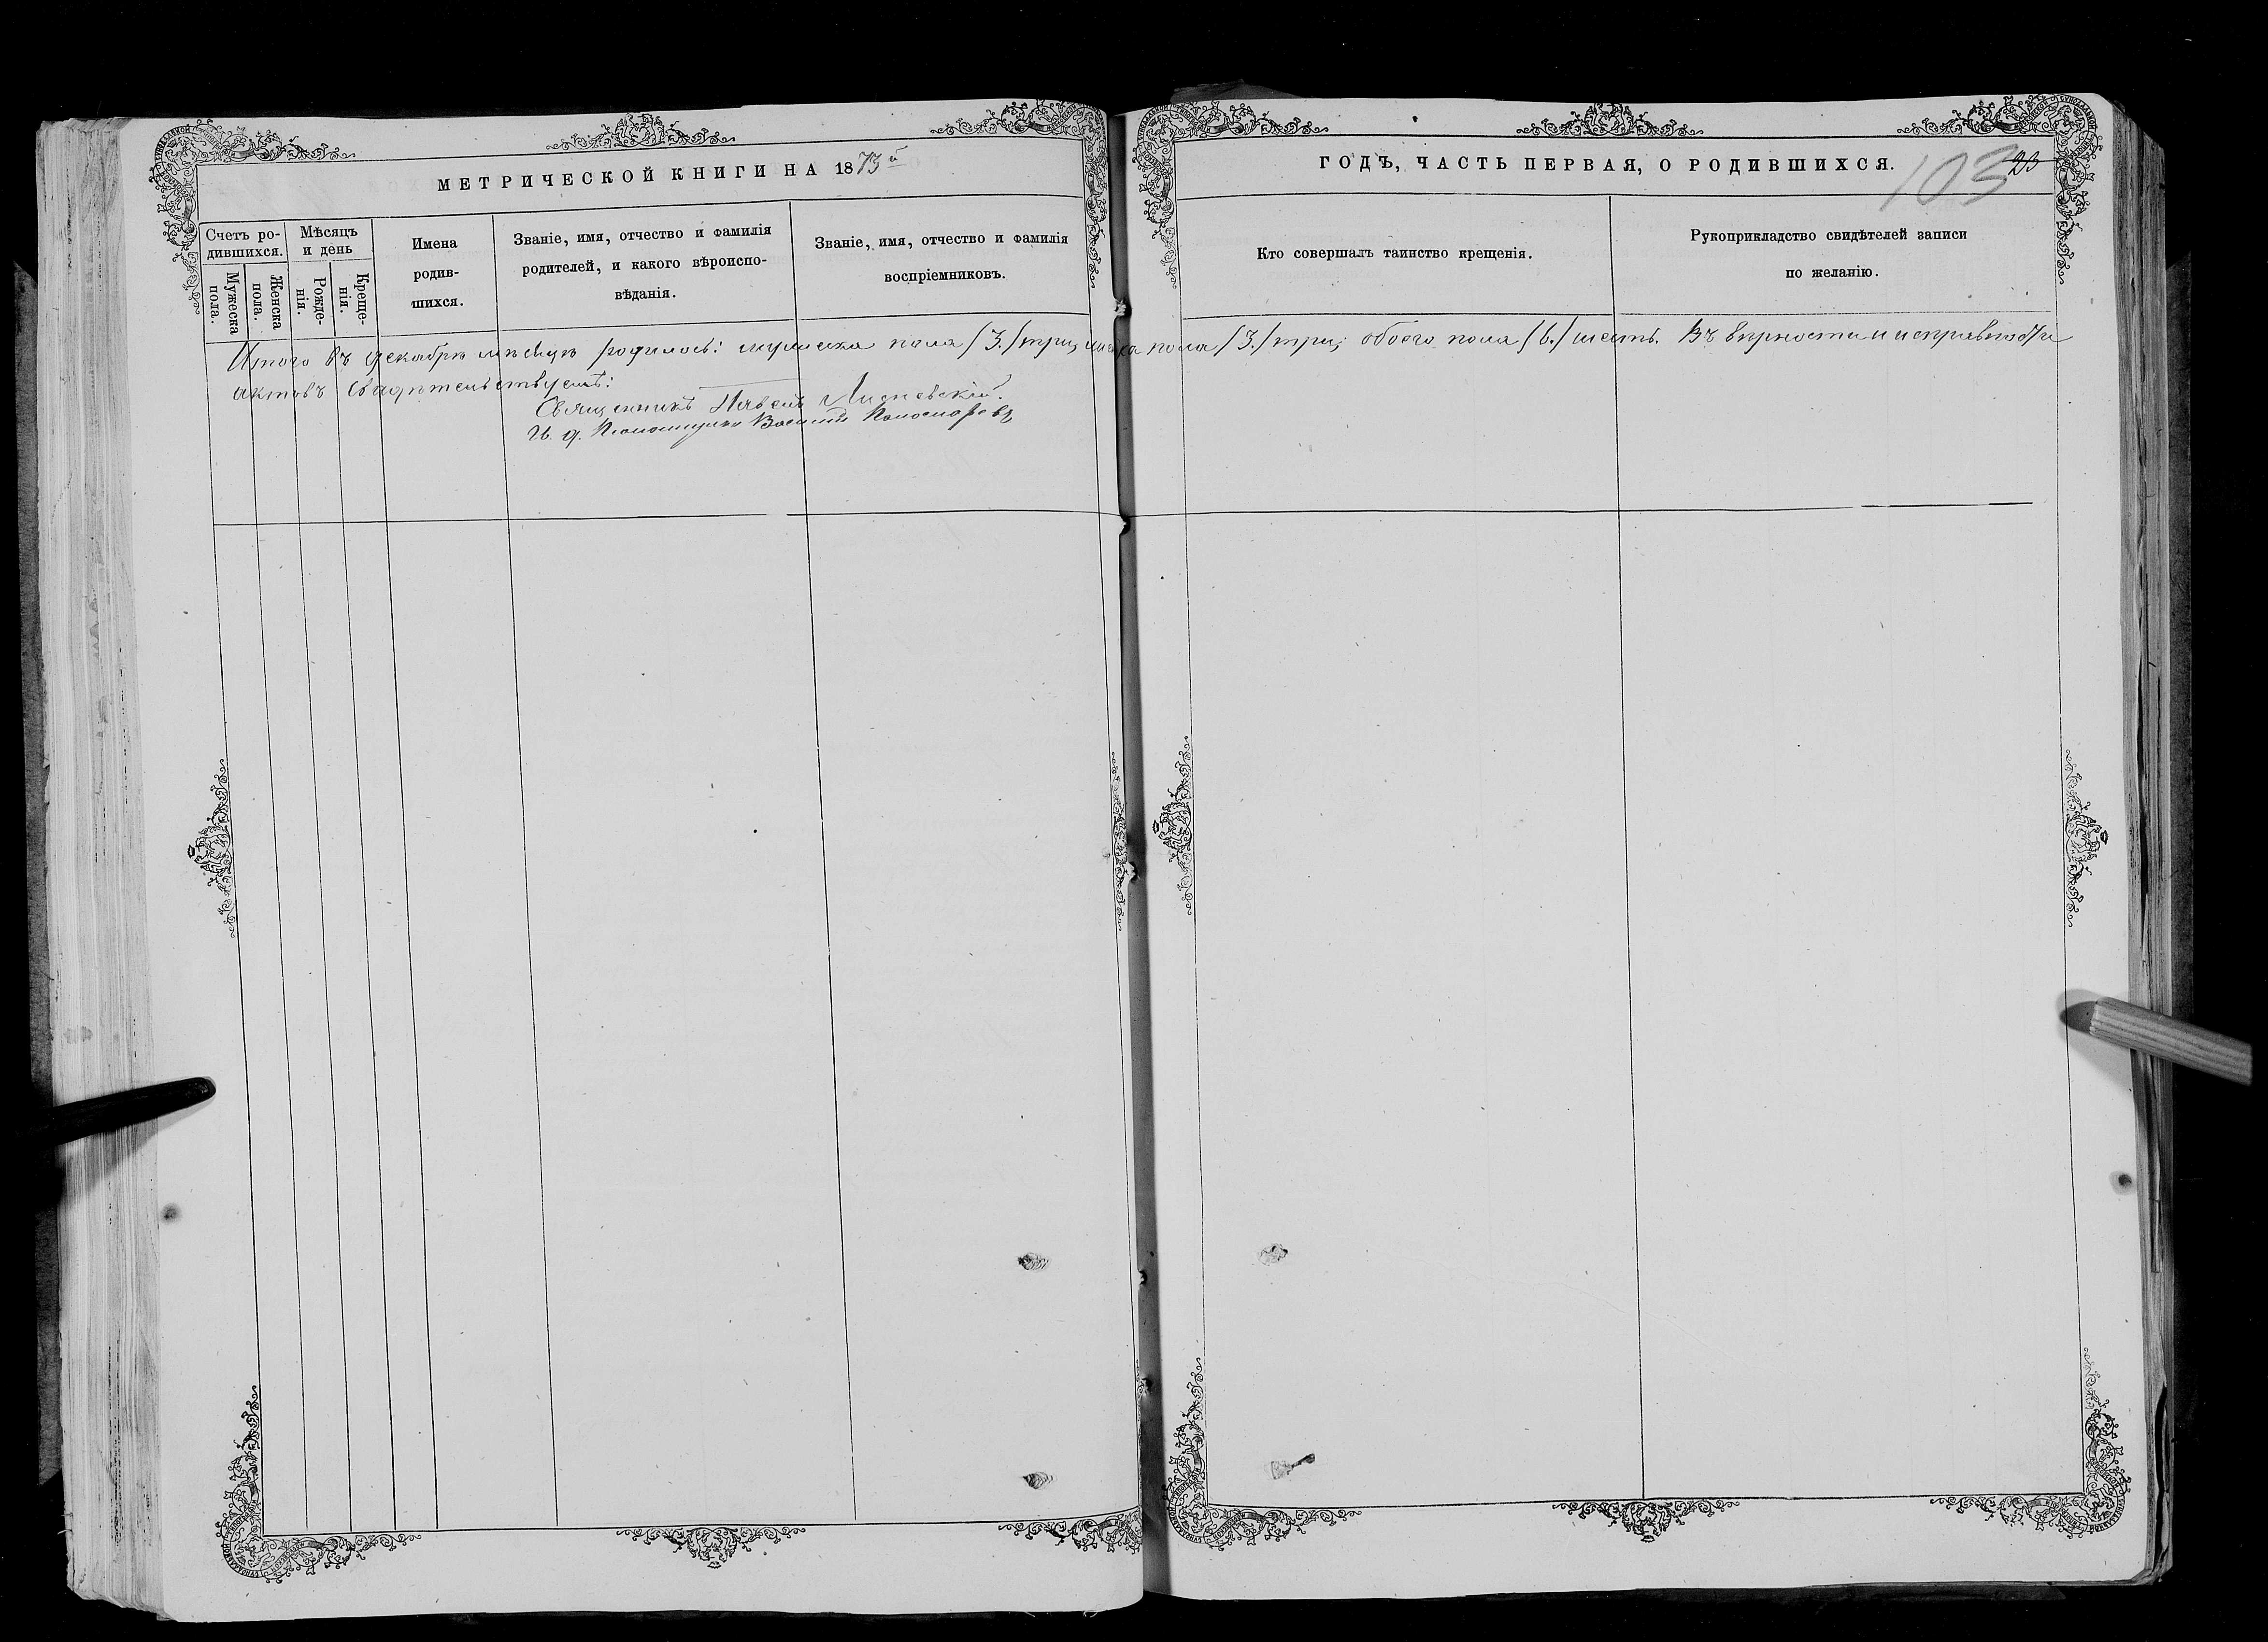 МЕТРИЧЕСКОЙ КНИГИ НА 1873й
ГОДЪ, ЧАСТЬ ПЕРВАЯ, О РОДИВШИХСЯ.
103
23
Счетъ ро-
дившихся.
Мужеска
пола.
Женска
пола.
Мѣсяцъ
и день
Рожде-
нія.
Креще-
нія.
Имена
родив-
шихся.
Званіе, имя, отчество и фамилія
родителей, и какого вѣроиспо-
вѣданія.
Званіе, имя, отчество и фамилія
воспріемниковъ.
Кто совершалъ таинство крещенія.
Рукоприкладство свидѣтелей записи
по желанію.
Итого въ декабрѣ мѣсяцѣ родилось: мужеска пола /3./ три, женска пола /3./ три; обоего пола /6./ шесть. Въ вѣрности и исправности
актовъ свидѣтельствуемъ:
Священникъ Павелъ Лисневскій.
И. д. Псаломщика Василій Пономаревъ